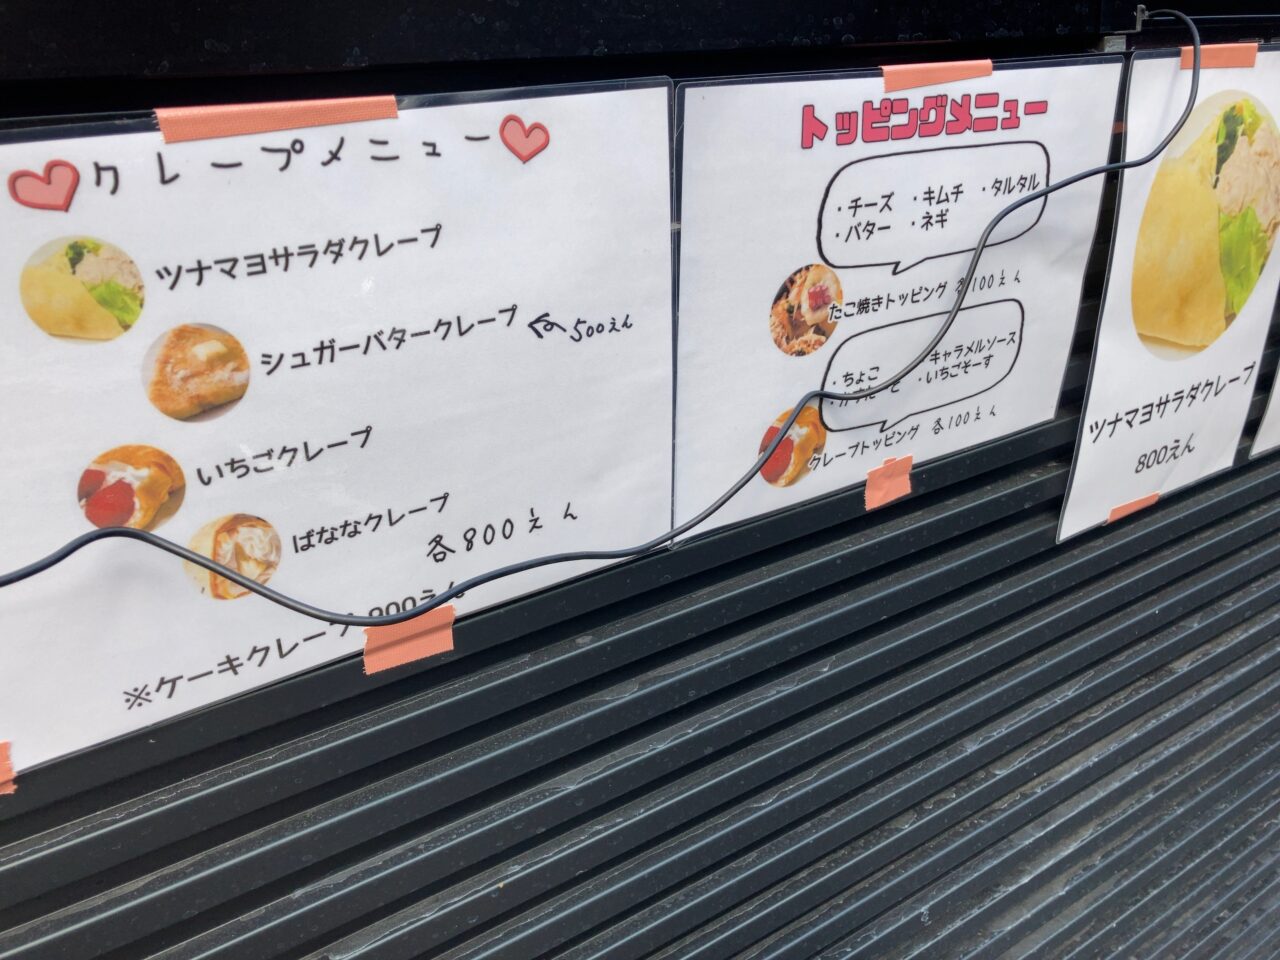 クレープメニュー
ツナマヨサラダクレープ
シュガーバタークレープ ←500えん
いちごクレープ
ばななクレープ
各800えん
※ケーキクレープ 900えん
トッピングメニュー
・チーズ ・キムチ ・タルタル
・バター ・ネギ
たこ焼きトッピング 各100えん
・ちょこ ・キャラメルソース
・いちごそーす
クレープトッピング 各100えん
ツナマヨサラダクレープ
800えん